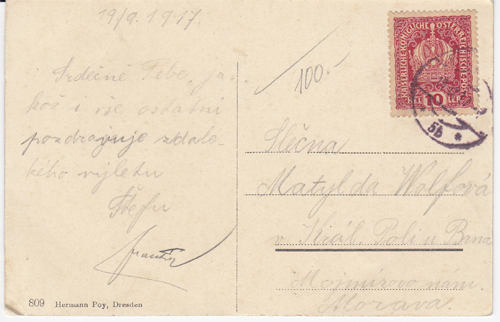 19/9. 1917
Srdečně Tebe, ja
kož i vše ostatní
pozdravuje z dale
kého výletu
100.-
KAISERLICHE KÖNIGLICHE ÖSTERREICHISCHE POST
10
HELLER
5b *
Slečna
Matylda Wolfová
v Král. Poli u Brna
Mojmírovo nám.
Morava.
809 Hermann Poy, Dresden